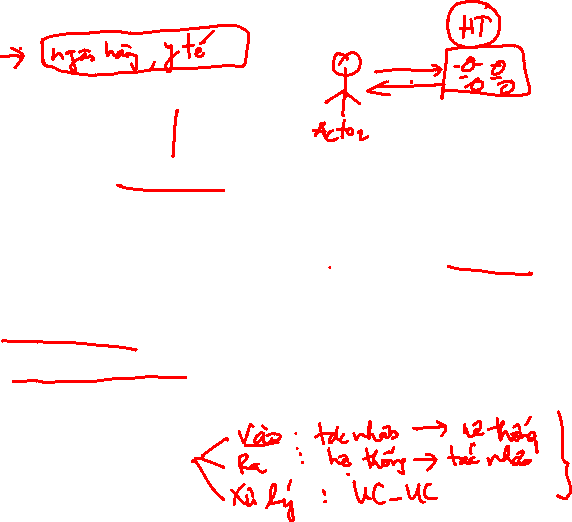 ngân hàng, y tế
HT
Actor
Vào : tác nhân → hệ thống
Ra : hệ thống → tác nhân
Xử lý : UC_UC